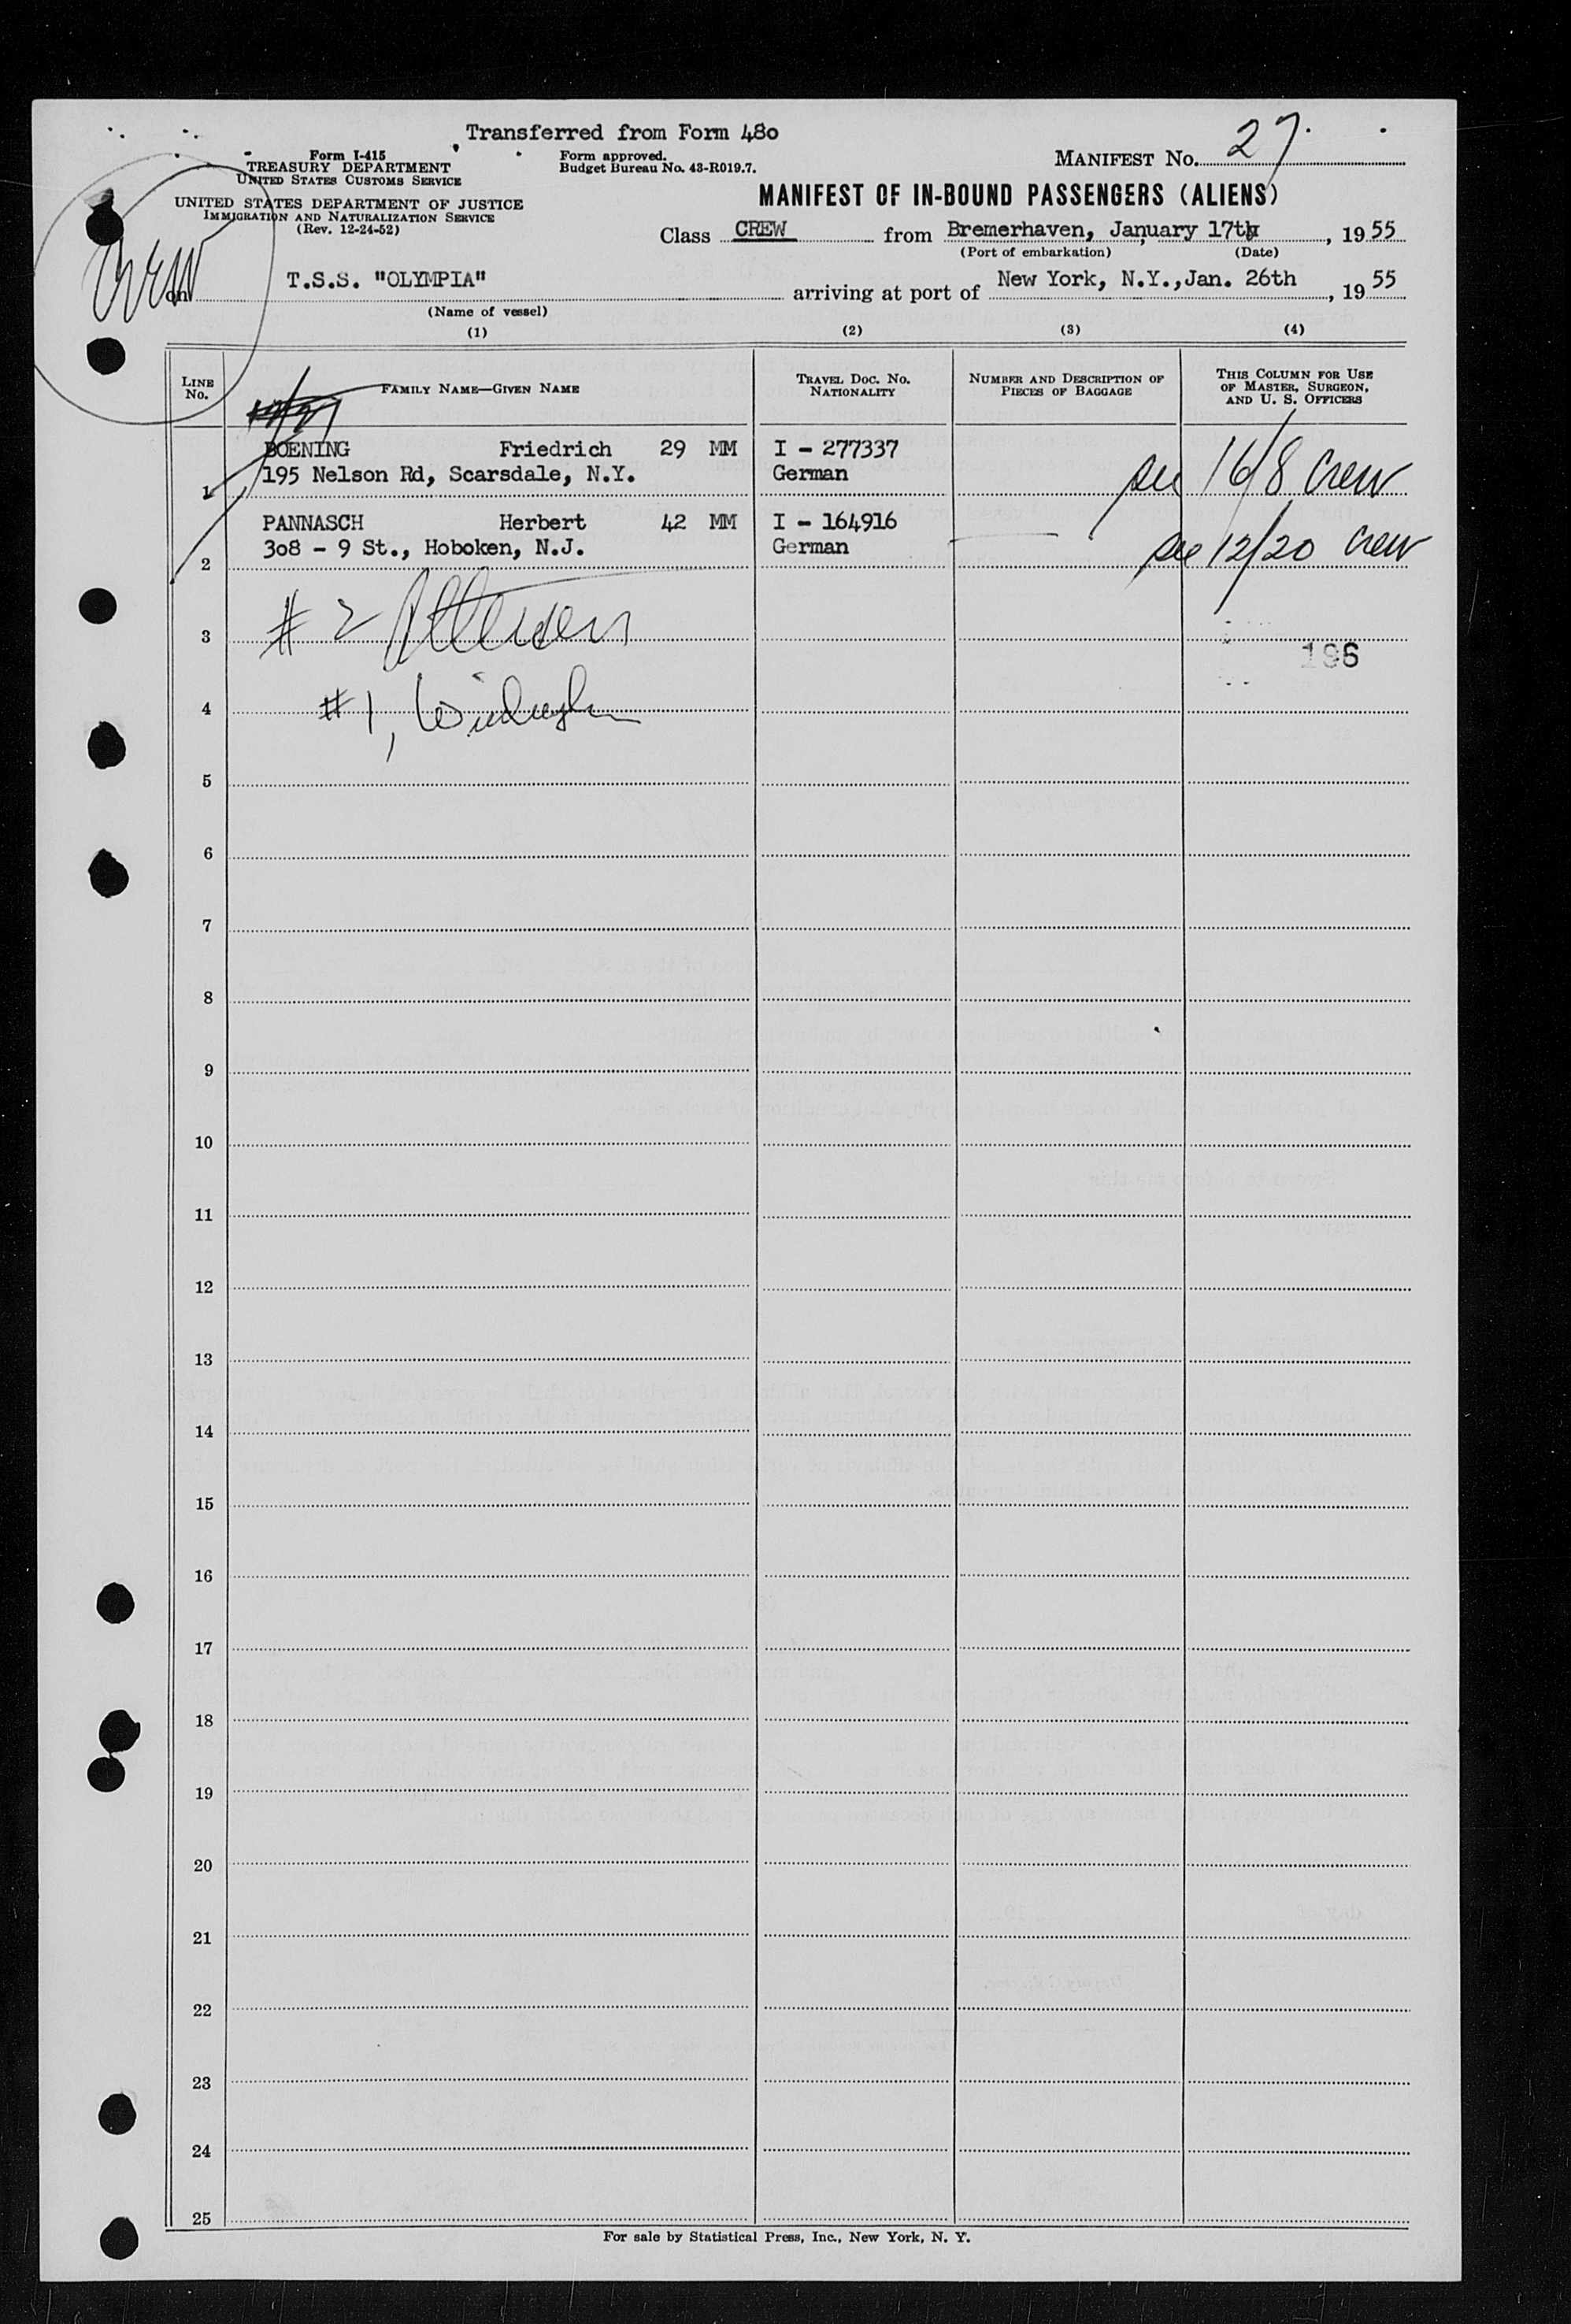 Transferred from Form 480
Form I-415
TREASURY DEPARTMENT
UNITED STATES CUSTOMS SERVICE
Form approved.
Budget Bureau No. 43-R019.7.
MANIFEST No. 27
UNITED STATES DEPARTMENT OF JUSTICE
IMMIGRATION AND NATURALIZATION SERVICE
(Rev. 12-24-52)
MANIFEST OF IN-BOUND PASSENGERS (ALIENS)
Class CREW from Bremerhaven, January 17th, 1955
(Port of embarkation) (Date)
Crew
on T.S.S. "OLYMPIA" arriving at port of New York, N.Y., Jan. 26th, 1955
(Name of vessel)
(1) (2) (3) (4)
LINE No.
FAMILY NAME—GIVEN NAME
TRAVEL DOC. NO. NATIONALITY
NUMBER AND DESCRIPTION OF PIECES OF BAGGAGE
THIS COLUMN FOR USE OF MASTER, SURGEON, AND U. S. OFFICERS
BOENING Friedrich 29 MM I - 277337
1 195 Nelson Rd, Scarsdale, N.Y. German see 16/8 Crew
PANNASCH Herbert 42 MM I - 164916
2 308 - 9 St., Hoboken, N.J. German see 12/20 Crew
3 # 2
196
4 #1,
5
6
7
8
9
10
11
12
13
14
15
16
17
18
19
20
21
22
23
24
25
For sale by Statistical Press, Inc., New York, N. Y.